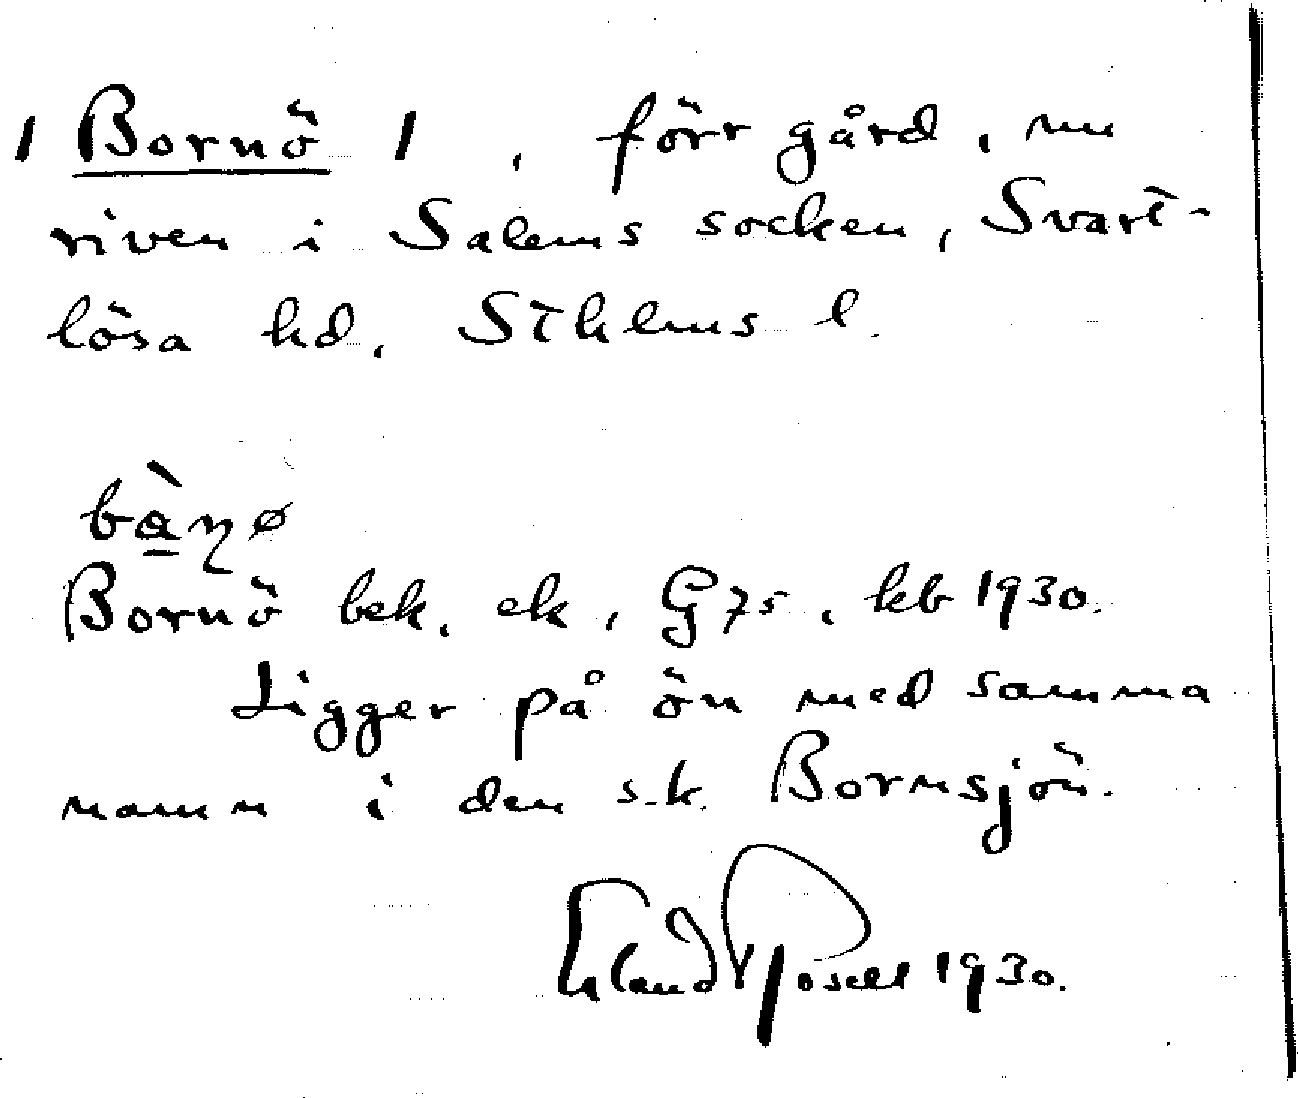 / Bornö /, förr gård, nu
riven i Salems socken, Svart-
lösa hd, Sthlms l.
bą̀ɳø
Bornö bek. ek, G 75, kb 1930.
Ligger på ön med samma
namn i den s.k. Bornsjön.
Erland Rosell 1930.